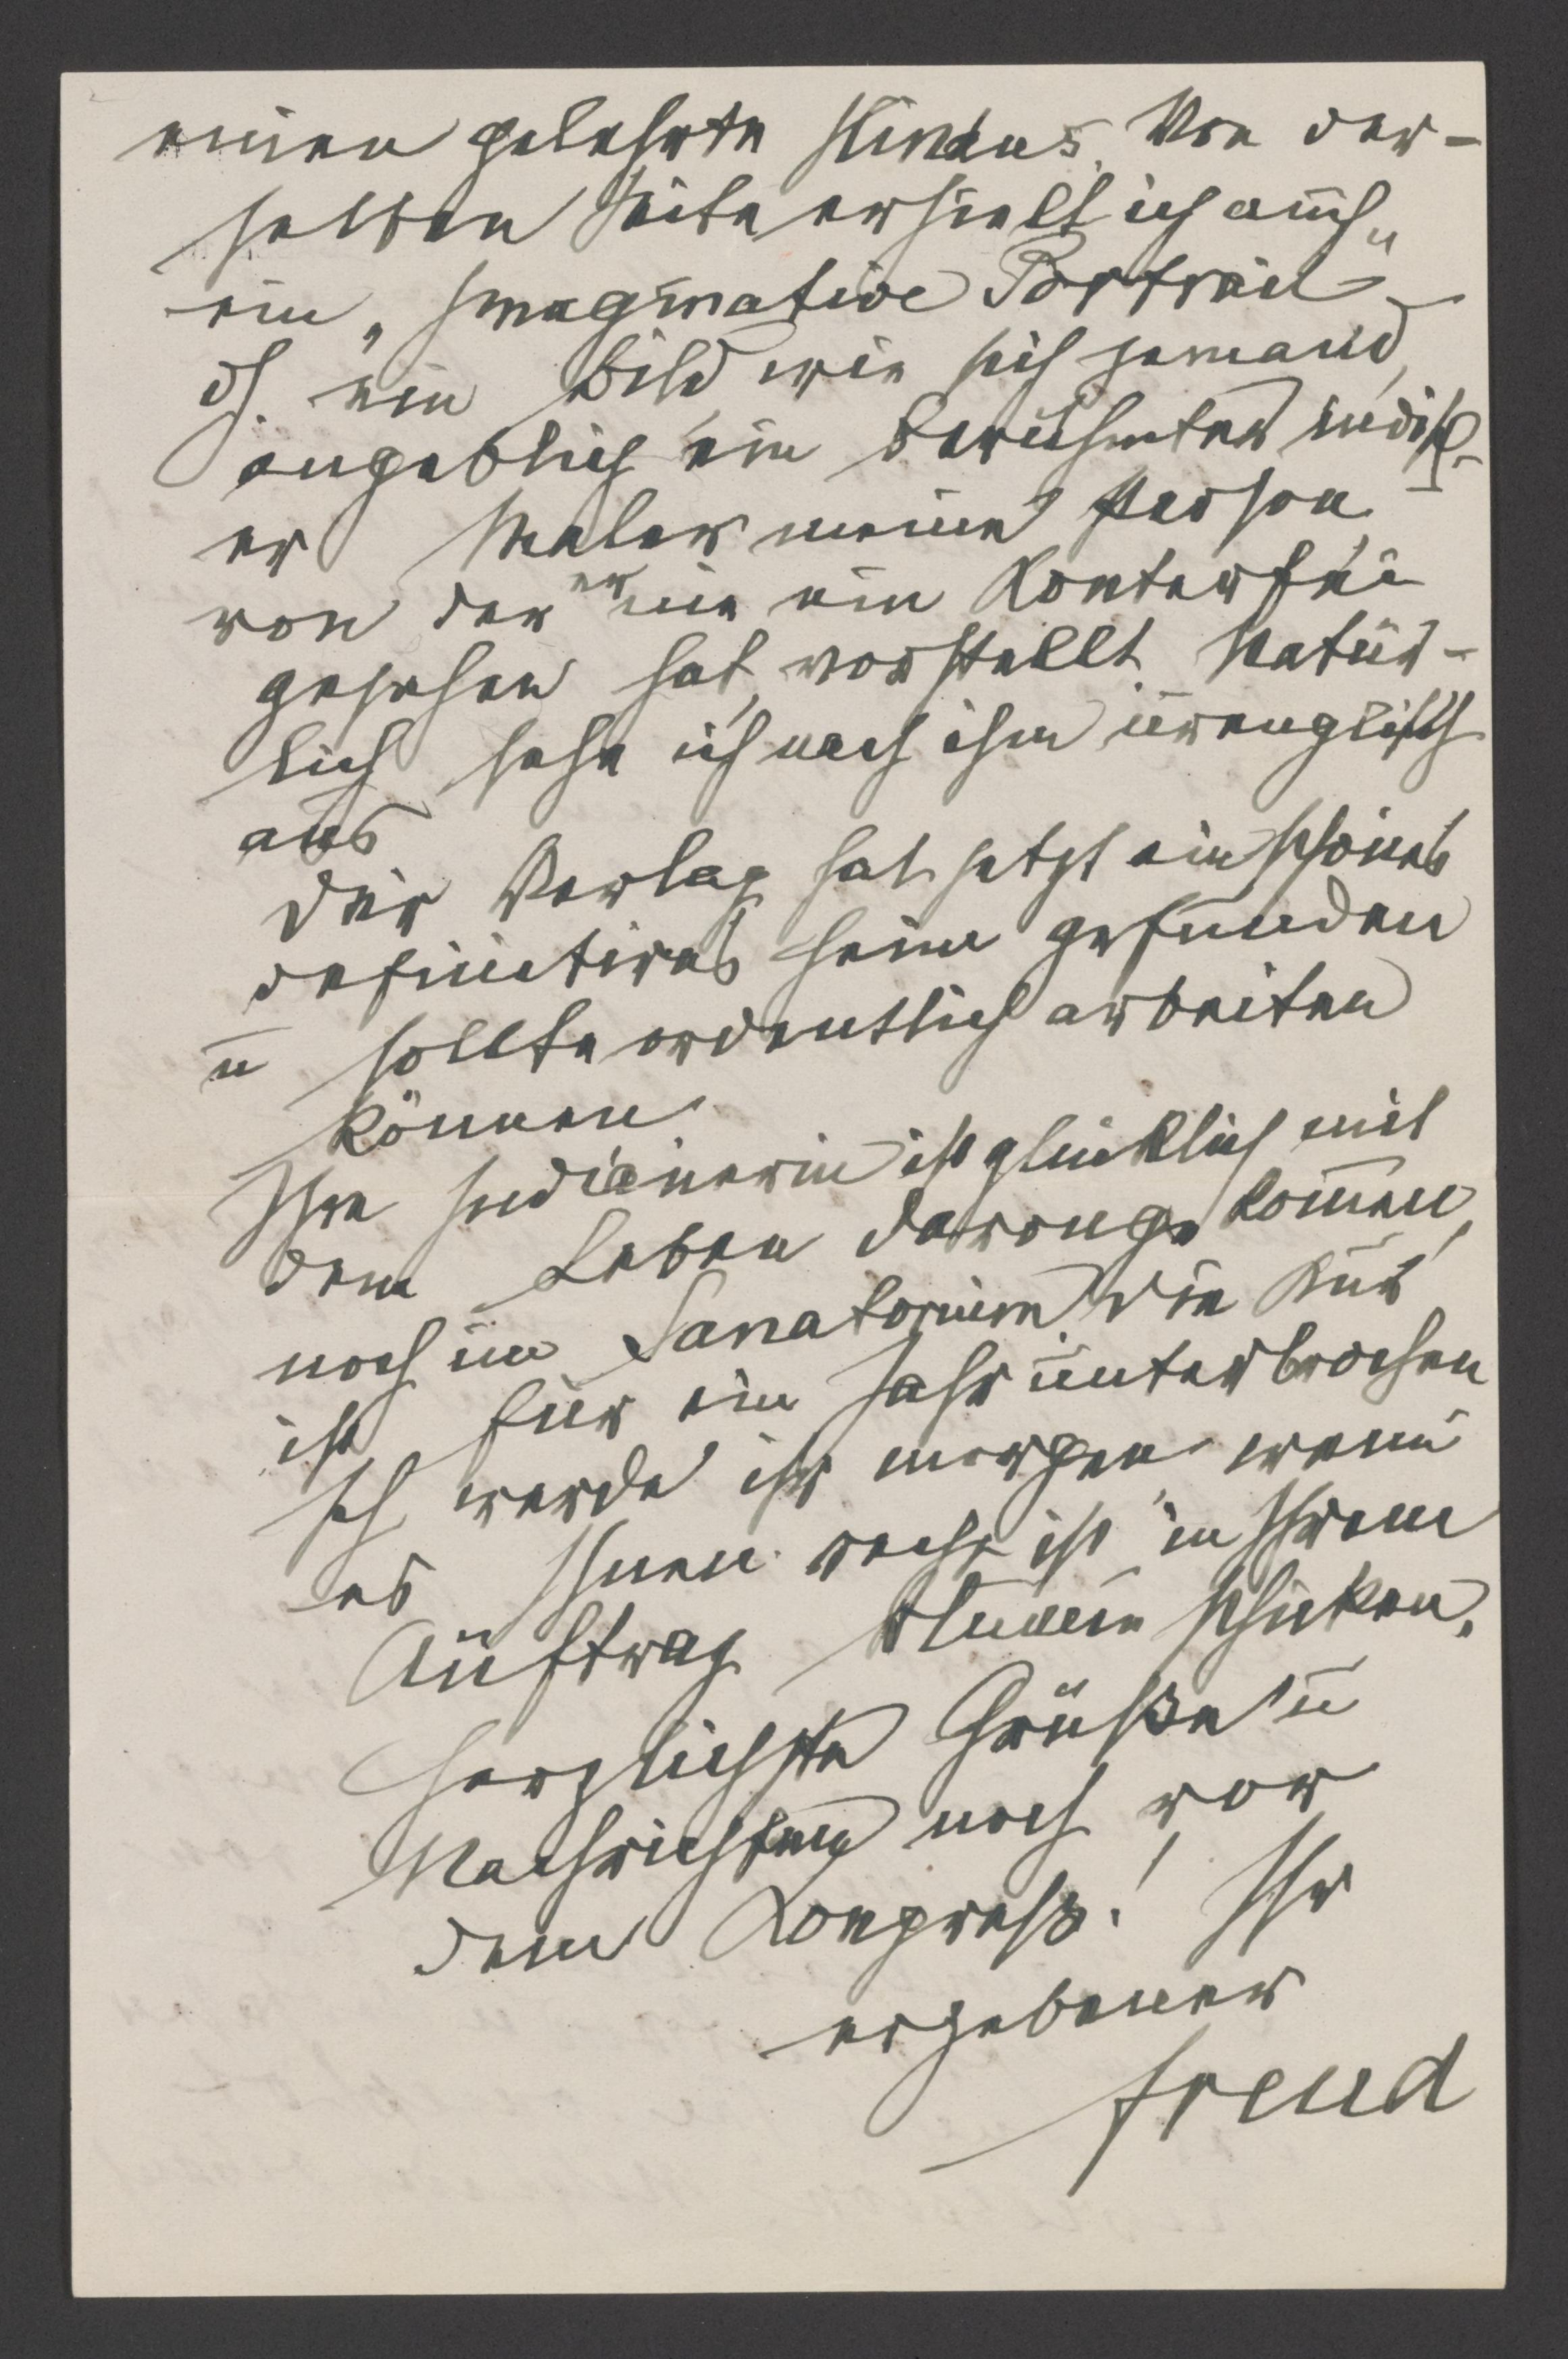 einen gelehrte Hindus. Von der-
selben Seite erhielt ich auch
ein „Imaginative Portrait“
dh. ein Bild wie sich jemand,
angeblich ein berühmter indisch-
er Maler meine Person
von der er nie ein Konterfei
gesehen hat, vorstellt. Natür-
lich sehe ich nach ihm urenglisch
aus
Der Verlag hat jetzt ein schönes
definitives Heim gefunden
u sollte ordentlich arbeiten
können.
Ihre Indianerin ist glücklich mit
dem Leben davongekommen,
noch im Sanatorium. Die Kur
ist für ein Jahr unterbrochen
Ich werde ihr morgen wenn
es Ihnen recht ist in Ihrem
Auftrag Blumen schicken.
Herzlichste Grüße u
Nachrichten noch vor
dem Kongreß! Ihr
ergebener
Freud